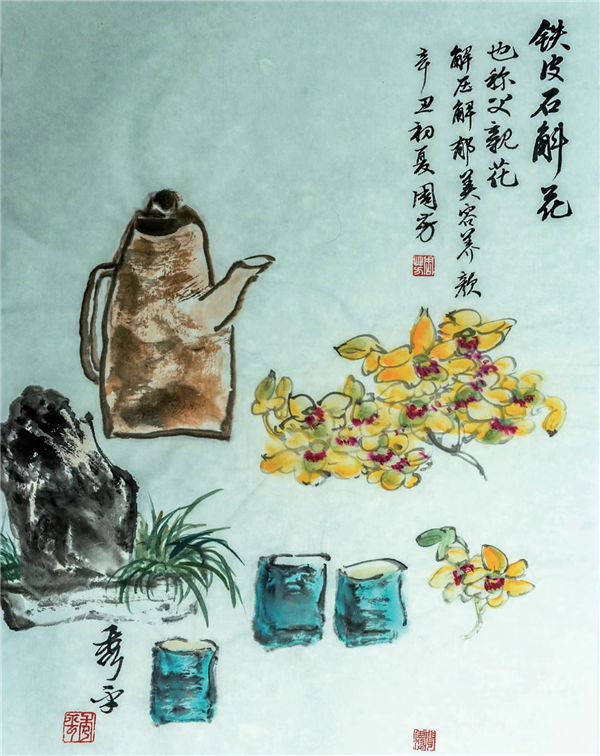 铁皮石斛花
也称父亲花
解压解郁美容养颜
辛丑初夏周芳
秀平